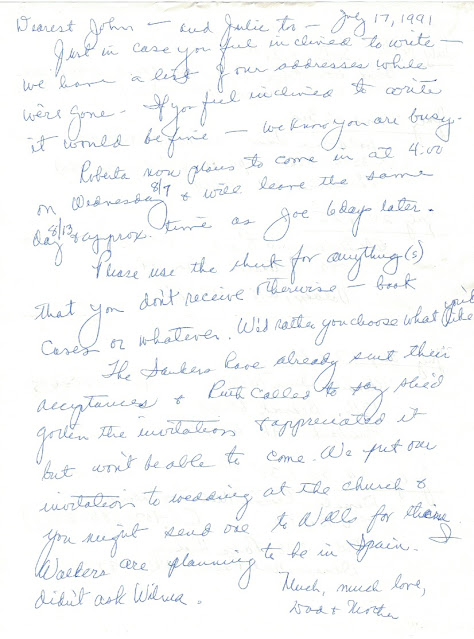 Dearest John — and Julie to — July 17, 1991
Just in case you feel inclined to write —
we have a list of our addresses while
we're gone - If you feel inclined to write
it would be fine — we know you are busy.
Roberta now plans to come in at 4:00
on Wednesday 8/7 & will leave the same
day 8/13 & approx. time as Joe 6 days later.
Please use the check for anything(s)
that you don't receive otherwise — book
cases or whatever. We'd rather you choose what you'd like
The have already sent their
acceptances & Ruth called to say she'd
gotten the invitation & appreciated it
but won't be able to come. We put our
invitation to wedding at the church &
you might send one to Wells for theirs.
Walkers are planning to be in Spain.
didn't ask Wilma.
Much, much love,
Dad & Mother